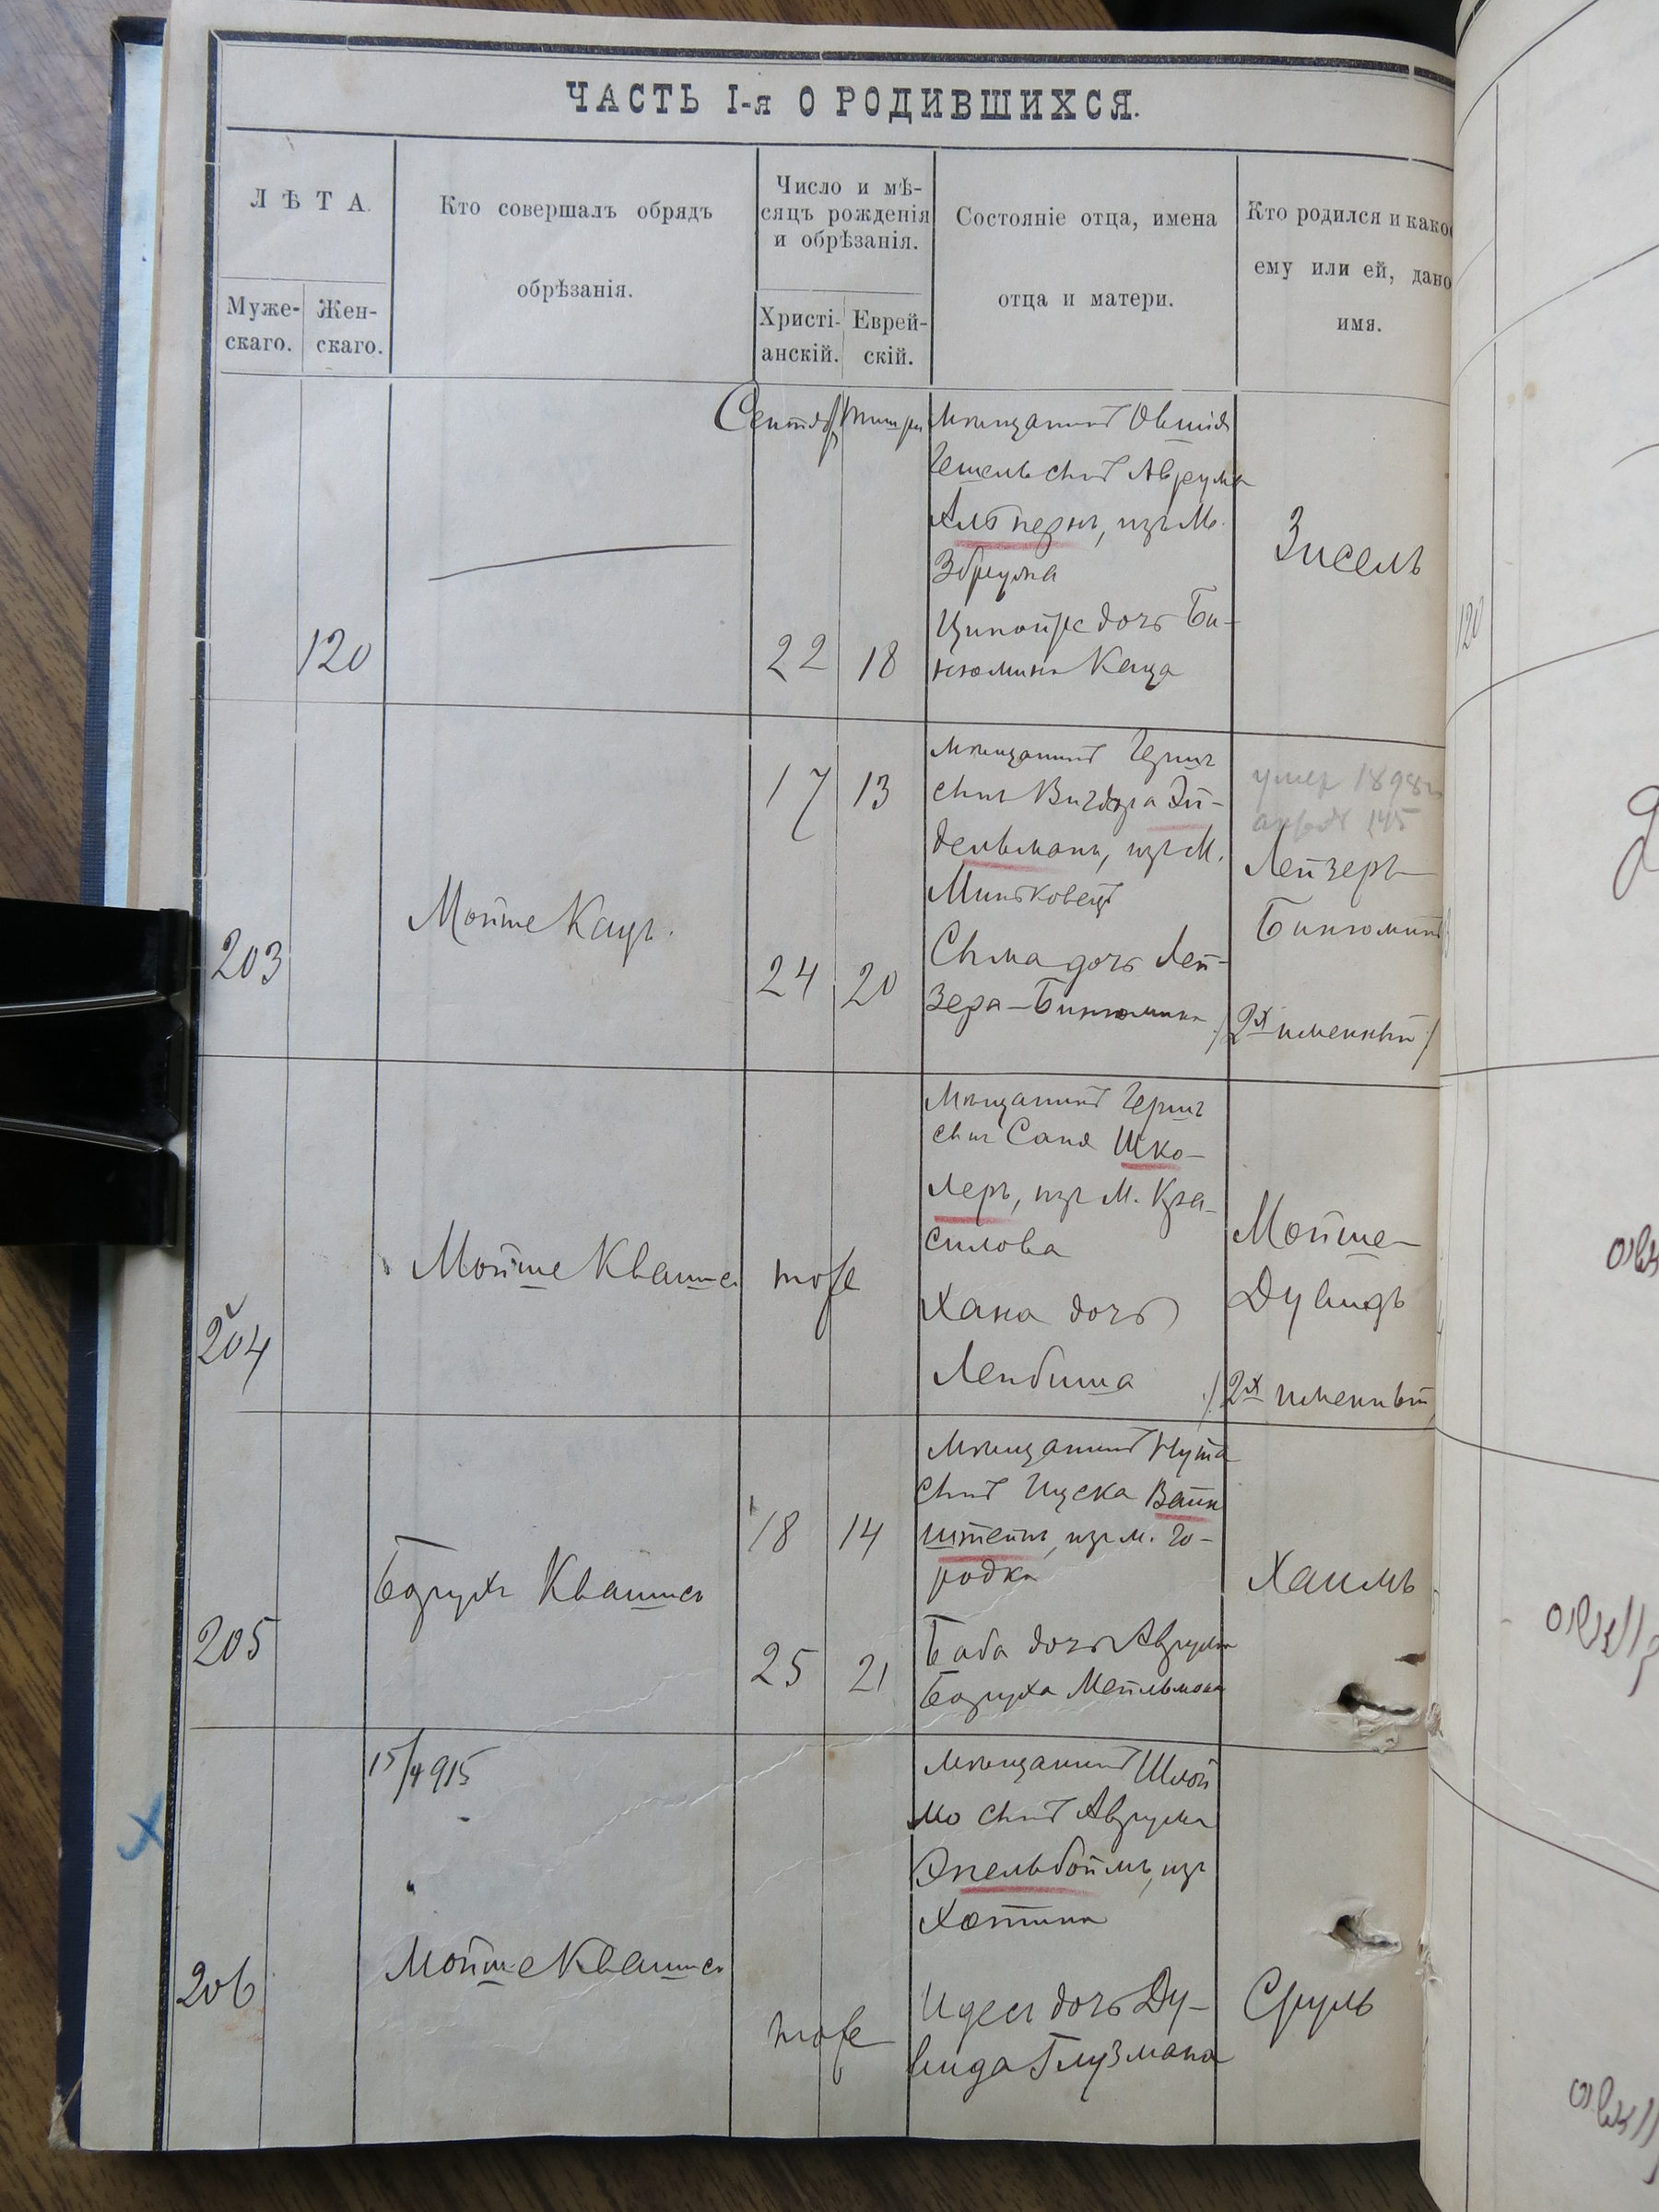 ЧАСТЬ I-я О РОДИВШИХСЯ.
ЛѢТА.
Муже-
скаго.
Жен-
скаго.
Кто совершалъ обрядъ
обрѣзанія.
Число и мѣ-
сяцъ рожденія
и обрѣзанія.
Христі-
анскій.
Еврей-
скій.
Состояніе отца, имена
отца и матери.
Кто родился и како
ему или ей, дано
имя.
120
Сентяб Тишри
22 18
Мѣщанинъ
сынъ Аврума
Альперн, изъ М.
Збрузка
дочь Би-
нюмина Каца
Зисель
203
Мойше Кацъ.
17 13
24 20
Мѣщанинъ Гершъ
сынъ Вигдора Эй-
дельманъ, изъ М.
Миньковецъ
Сима дочь Лей-
зера-Бинюмина
умер 1898г
Лейзеръ
Бинюминъ
/2х именный/
204
Мойше Кваша
тоже
Мѣщанинъ Гершъ
сынъ Шко-
леръ, изъ М. Кра-
силова
Хана дочь
Лейбиша
Мойше-
Дувидъ
/2х именный
205
Борухъ Кваша
18 14
25 21
Мѣщанинъ Нута
сынъ Ицека Вайн
штейнъ, изъ м. Го-
родка
Баба дочь Аврума
Боруха Мейльмана
Хаимъ
206
15/4 915
Мойше Кваша
тоже
Мѣщанинъ Шлой
мо сынъ Аврума
Эпельбоймъ, изъ
Хотина
Идесъ дочь Ду-
вида Глузмана
Сруль
120